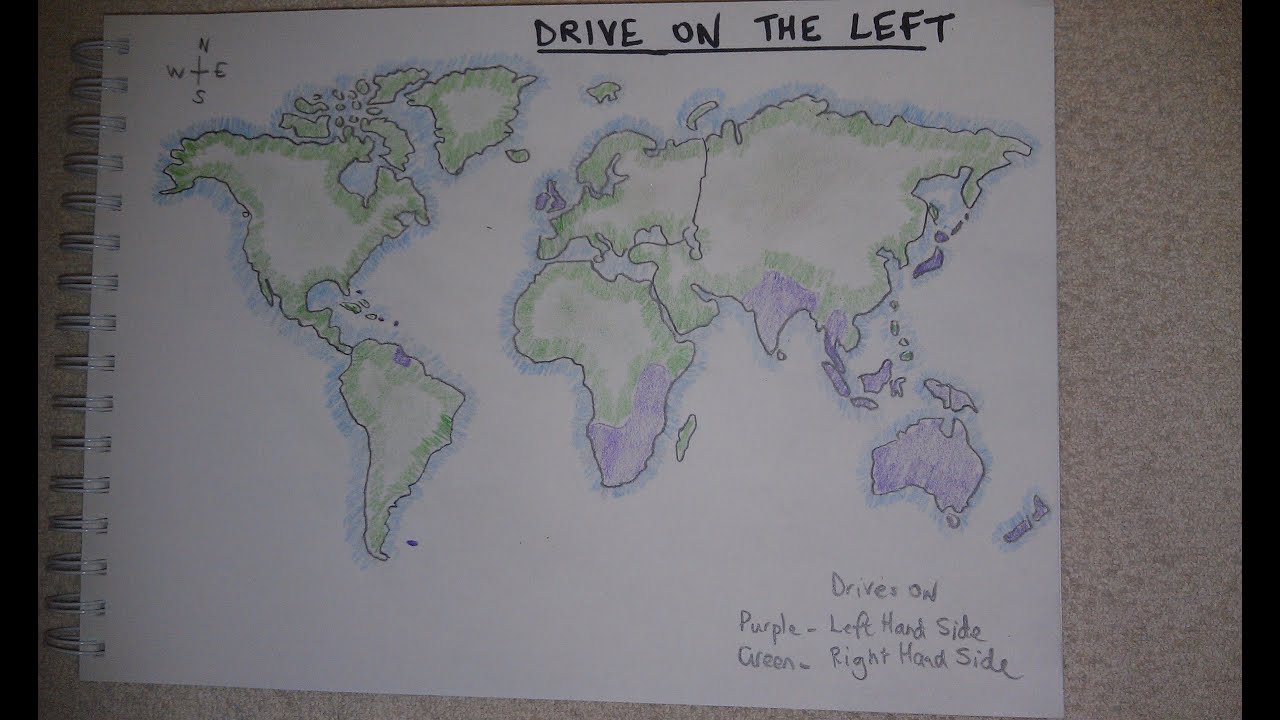 DRIVE ON THE LEFT
N
W E
S
Drives on
Purple - Left Hand Side
Green - Right Hand Side